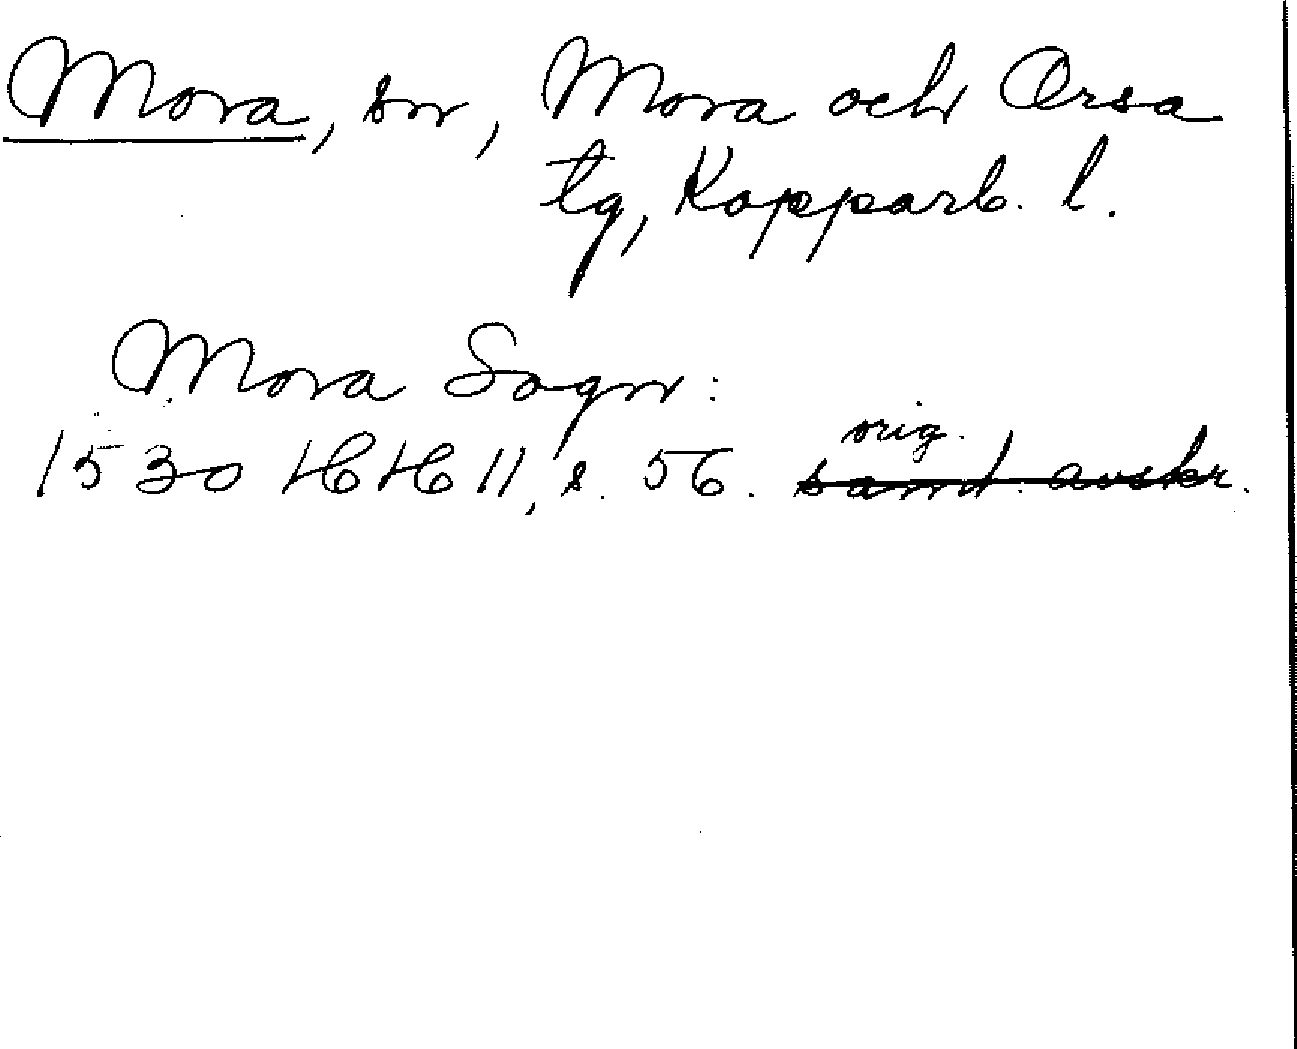 Mora, sn, Mora och Orsa
tg, Kopparb. l.
Mora Sogn:
orig.
1530 HH 11, s. 56. samt. avskr.